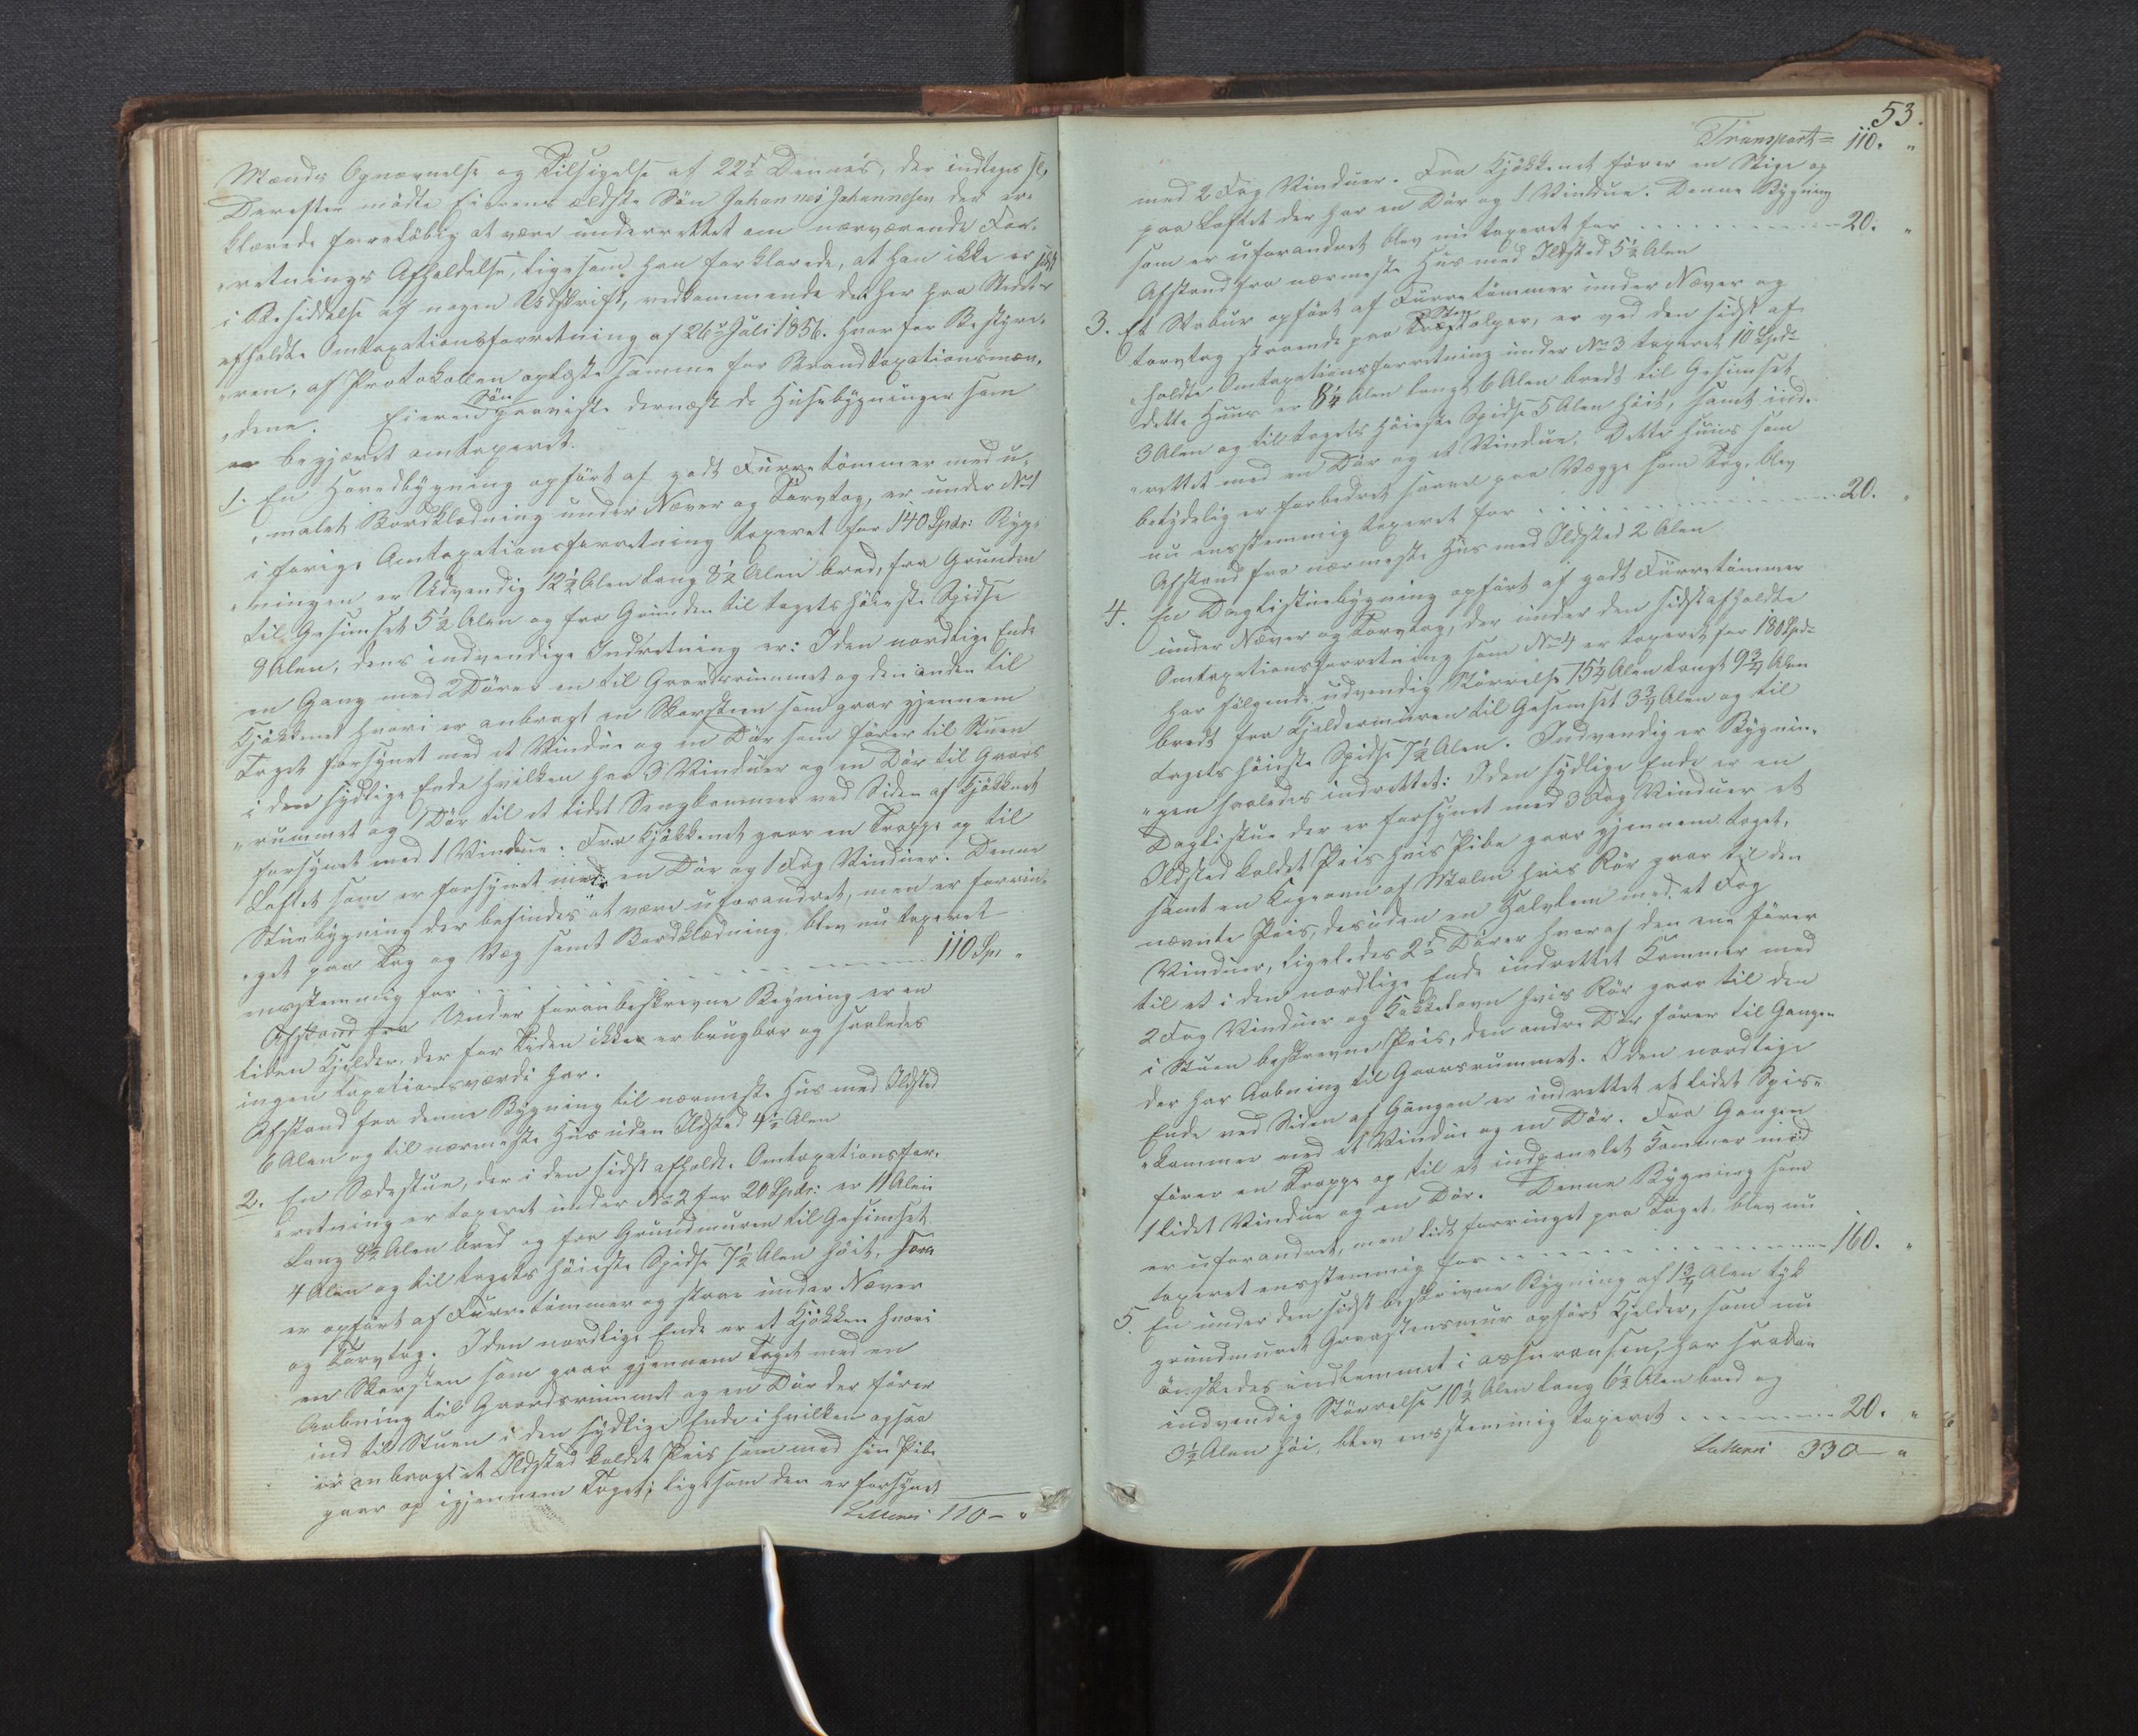 Mænds Opnævnelse og Tilsigelse af 22de Dennes, der indtages
Derefter mödte Eierens ældste Sön Johannes Johannesen der er-
klærede foreløbig at være underrettet om nærværende For-
retnings Afholdelse, ligesom han forklarede, at han ikke er
i Besiddelse af nogen Udskrift, vedkommende den her paa Stedet
afholdte Omtaxationsforretning af 26de Juli 1856. hvorfor Bestyre-
ren, af Protokollen oplæste samme for Brandtaxationsmæn-
dene. Eierens Sön paaviste dernæst de Huusebygninger som
er begjæret omtaxeret.
1. En Hovedbygning opfört af godt Furretömmer med u-
malet Bordklædning under Næver og Törvtag, er under No 1
i forige Omtaxationsforretning taxeret for 140 Spdr: Byg-
ningen er Udvendig 12½ Alen lang 8½ Alen bred, fra Grunden
til Gesimset 5½ Alen og fra Grunden til tagets höieste Spidse
8 Alen, dens indvendige Indretning er: I den nordlige Ende
en Gang med 2 Dörer en til Gaardsrummet og den anden til
Kjökkenet hvori er anbragt en Skorsteen som gaar gjennem
Taget forsynet med et Vindue og en Dör som förer til Stuen
i den sydlige Ende hvilken har 3 Vinduer og en Dör til Gaards-
rummet og 1 Dör til et lidet Sengkammer ved Siden af Kjökkenet
forsynet med 1 Vindue. Fra Kjökkenet gaar en Trappe op til
Loftet som er forsynet med en Dör og 1 Fag Vinduer. Denne
Stuebygning der befindes at være uforandret, men er forrin-
get paa Tag og Væg samt Bordklædning, blev nu taxeret
enstemmig for . . . . . . . 110 Spd "
Afstand fra Under foranbeskrevne Bygning er en
liden Kjelder, der for Tiden ikke er brugbar og saaledes
ingen taxationsværdi har.
Afstand fra denne Bygning til nærmeste Hus med Ildsted
6 Alen og til nærmeste Hus uden Ildsted 4½ Alen
2. En Sædestue, der i den sidst afholdte Omtaxationsfor-
retning er taxeret under No 2 for 20 Spdr: er 11 Alen
lang 8½ Alen bred og fra Grundmuren til Gesimset
4 Alen og til tagets höieste Spidse 7½ Alen höit,
er opfört af Furretömmer og staar under Næver
og Törvtag. I den nordlige Ende er et Kjökken hvori
en Skorsten som gaar gjennem Taget med en
Aabning til Gaardsrummet og en Dör der förer
ind til Stuen i den sydlige Ende i hvilken ogsaa
er anbragt et Ildsted kaldet Peis som med sin Pibe
gaar op igjennem Taget; ligesom den er forsynet
Latteris 110 – "
53.
Transport = 110. "
med 2 Fag Vinduer. Fra Kjökkenet förer en Stige op
paa Loftet der har en Dör og 1 Vindue. Denne Bygning
som er uforandret blev nu taxeret for . . . . . . . 20. "
Afstand fra nærmeste Hus med Ildsted 5½ Alen
3. Et Stabur opfört af Furretömmer under Næver og
törvtag staaende paa Stolper, er ved den sidst af-
holdte Omtaxationsforretning under No 3 taxeret 10 Spdr
dette Huus er 8¼ Alen langt 6 Alen bredt til Gesimset
3 Alen og til tagets höieste Spidse 5 Alen höit, samt ind-
rettet med en Dör og et Vindue. Dette Huus som
betydelig er forbedret saavel paa Vægge som Tag, blev
nu enstemmig taxeret for . . . . . . . 20. "
Afstand fra nærmeste Hus med Ildsted 2 Alen
4. En Daglistuebygning opfört af godt Furretömmer
under Næver og Törvtag, der under den sidstafholdte
Omtaxationsforretning som No 4 er taxeret for 180 Spdr
har fölgende udvendig Störrelse 15¼ Alen langt 9¾ Alen
bredt fra Kjeldermuren til Gesimset 3¾ Alen og til
tagets höieste Spidse 7½ Alen. Indvendig er Bygnin-
gen saaledes indrettet: I den sydlige Ende er en
Daglistue der er forsynet med 3 Fag Vinduer et
Ildsted kaldet Peis hvis Pibe gaar gjennem taget,
samt en Kogeovn af Malm hvis Rör gaar til den
nævnte Peis, desuden en Halvlem med et Fag
Vinduer, ligeledes 2de Dörer hvoraf den ene förer
til et i den nordlige Ende indrettet Kammer med
2 Fag Vinduer og Kakkelovn hvis Rör gaar til den
i Stuen beskrevne Peis, den andre Dör förer til Gangen
der har Aabning til Gaardsrummet. I den nordlige
Ende ved Siden af Gangen er indrettet et lidet Spis-
kammer med et Vindue og en Dör. Fra Gangen
förer en Trappe op til et indpanelet Kammer med
1 lidet Vindue og en Dör. Denne Bygning som
er uforandret, men lidt forringet paa Taget, blev nu
taxeret enstemmig for . . . . . . . 160. "
5. En under den sidst beskrivne Bygning af 1¾ Alen tyk
grundmuret Graastensmur opfört Kjelder, som nu
önskedes indlemmet i assuransen, har saadan
indvendig Störrelse 10½ Alen lang 6½ Alen bred og
3½ Alen höi, blev enstemmig taxeret . . . . . . 20. "
Latteris 330 – "